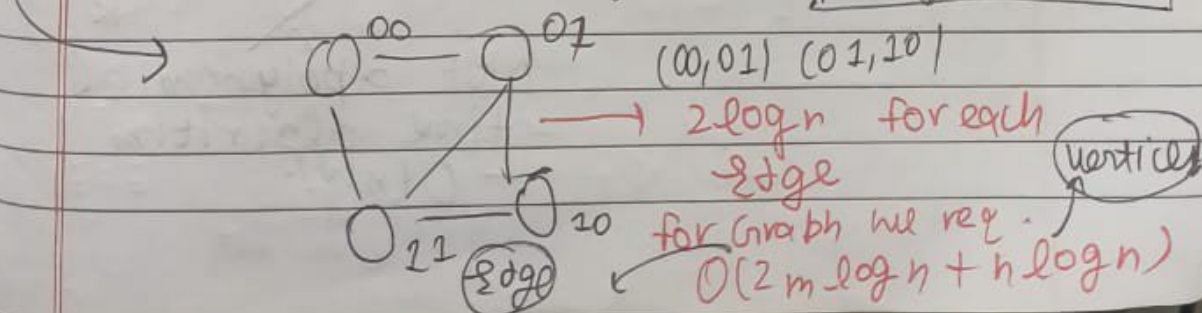 00 01 (00,01) (01,10)
2logn for each
Edge
vertices
11 10 for Graph we req.
Edge O(2mlogn + nlogn)